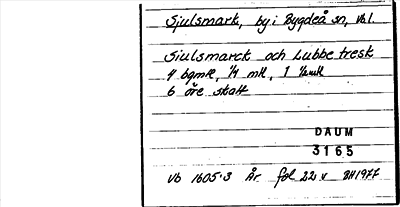 Sjulsmark, by i Bygdeå sn, Vbl.
Siulsmarck och Lubbetresk
4 bgmk, 1/4 mk, 1 1/2 mk
6 öre skatt
DAUM
3165
Vb 1605:3 År fol 22 v BH1977